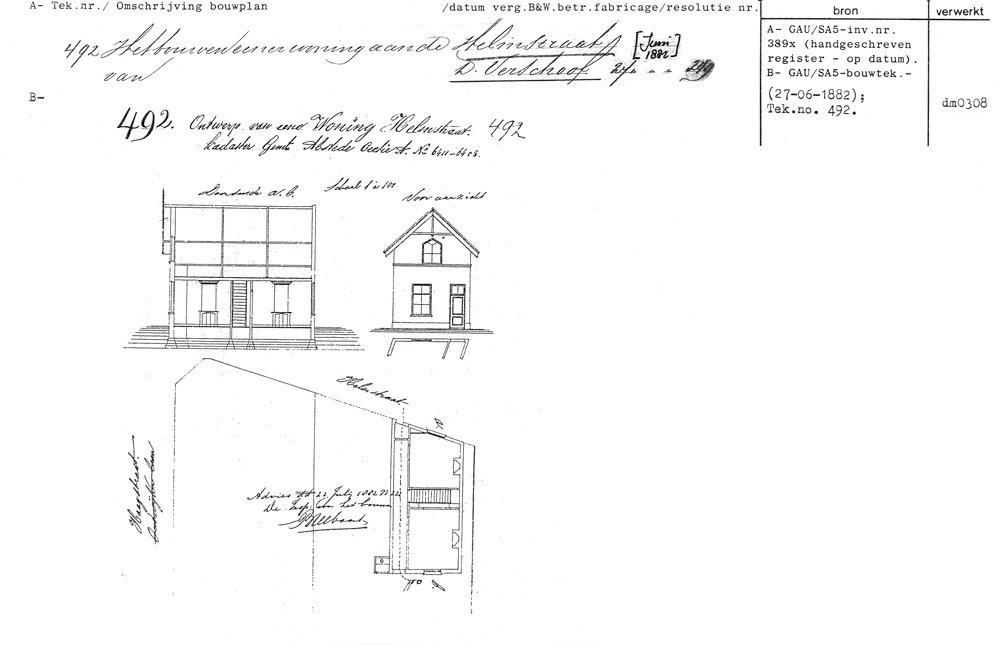 A- Tek.nr./ Omschrijving bouwplan /datum verg.B&W.betr.fabricage/resolutie nr.
bron
verwerkt
492 Het bouwen eener woning aan de Helmstraat [Juni 1882]
van D. Verschoof 27 " "
A- GAU/SA5-inv.nr.
389x (handgeschreven
register - op datum).
B- GAU/SA5-bouwtek.-
(27-06-1882);
Tek.no. 492.
dm0308
B-
492. Ontwerp van eene Woning Helmstraat. 492
Kadaster Gemt Abstede Sectie A. No
Doorsnede a.b.
Schaal 1 à 100
Vooraanzicht
Helmstraat.
a
Advies 22 1882 No 222
De Insp. van het bouwen
b.